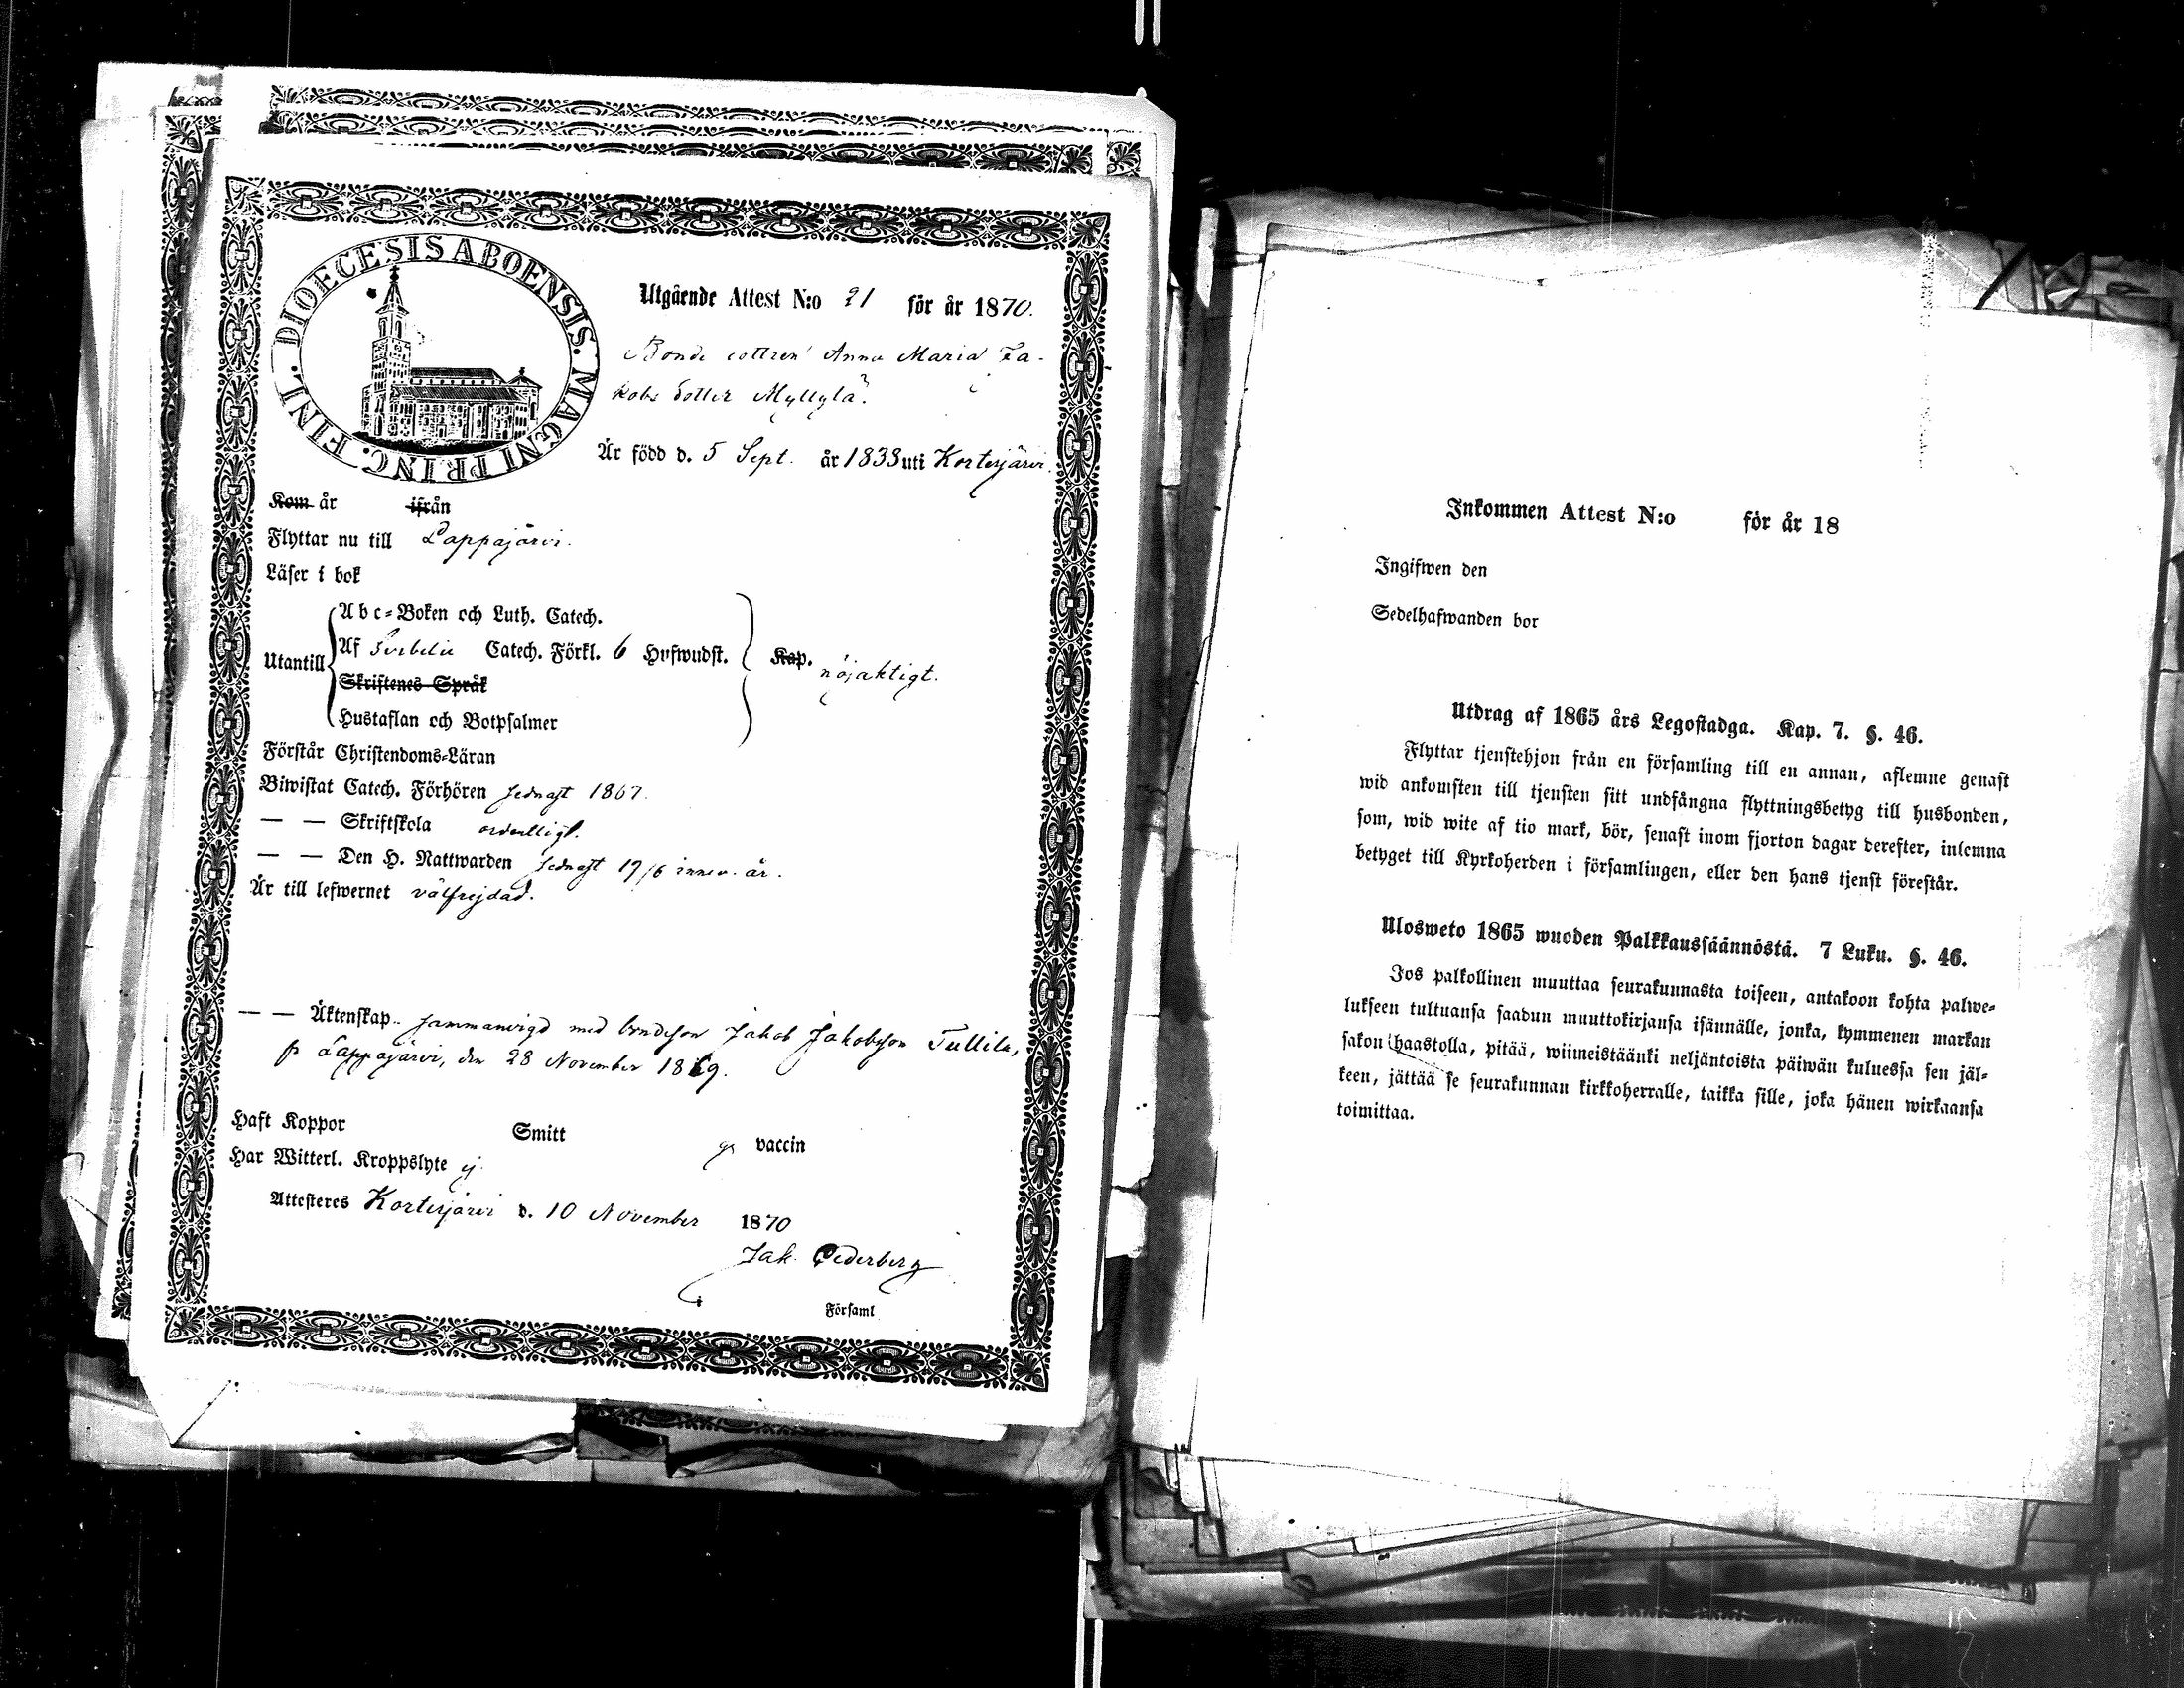 DIOECESIS ABOENSIS. MAGNI PRINC. FINL.
Utgående Attest N:o 21 för år 1870.
Bonde dottren Anna Maria Ja-
kobs dotter Myllylä.
Är född d. 5 Sept. år 1833 uti Kortesjärvi.
Kom år ifrån
Flyttar nu till Lappajärvi.
Läser i bok
Utantill
Abc-Boken och Luth. Catech.
Af Svebelii Catech. Förkl. 6 Hufwudst.
Skriftenes Språk
Hustaflan och Botpsalmer
Kap. nöjaktigt.
Förstår Christendoms-Läran
Biwistat Catech. Förhören sednast 1867.
— — Skriftskola ordentligt.
— — Den H. Nattwarden sednast 19/6 innev. år.
Är till lefwernet välfrejdad.
— — Äktenskap.. sammanvigd med bondeson Jakob Jakobsson Tullila,
fr Lappajärvi, den 28 November 1869.
Haft Koppor Smitt vaccin
Har Witterl. Kroppslyte ej
Attesteres Kortesjärvi d. 10 November 1870
Jak. Cederberg
Församl
Inkommen Attest N:o för år 18
Ingifwen den
Sedelhafwanden bor
Utdrag af 1865 års Legostadga. Kap. 7. §. 46.
Flyttar tjenstehjon från en församling till en annan, aflemne genast
wid ankomsten till tjensten sitt undfångna flyttningsbetyg till husbonden,
som, wid wite af tio mark, bör, senast inom fjorton dagar derefter, inlemna
betyget till Kyrkoherden i församlingen, eller den hans tjenst förestår.
Ulosweto 1865 wuoden Palkkaussäännöstä. 7 Luku. §. 46.
Jos palkollinen muuttaa seurakunnasta toiseen, antakoon kohta palwe-
lukseen tultuansa saadun muuttokirjansa isännälle, jonka, kymmenen markan
sakon haastolla, pitää, wiimeistäänki neljäntoista päiwän kuluessa sen jäl-
keen, jättää se seurakunnan kirkkoherralle, taikka sille, joka hänen wirkaansa
toimittaa.